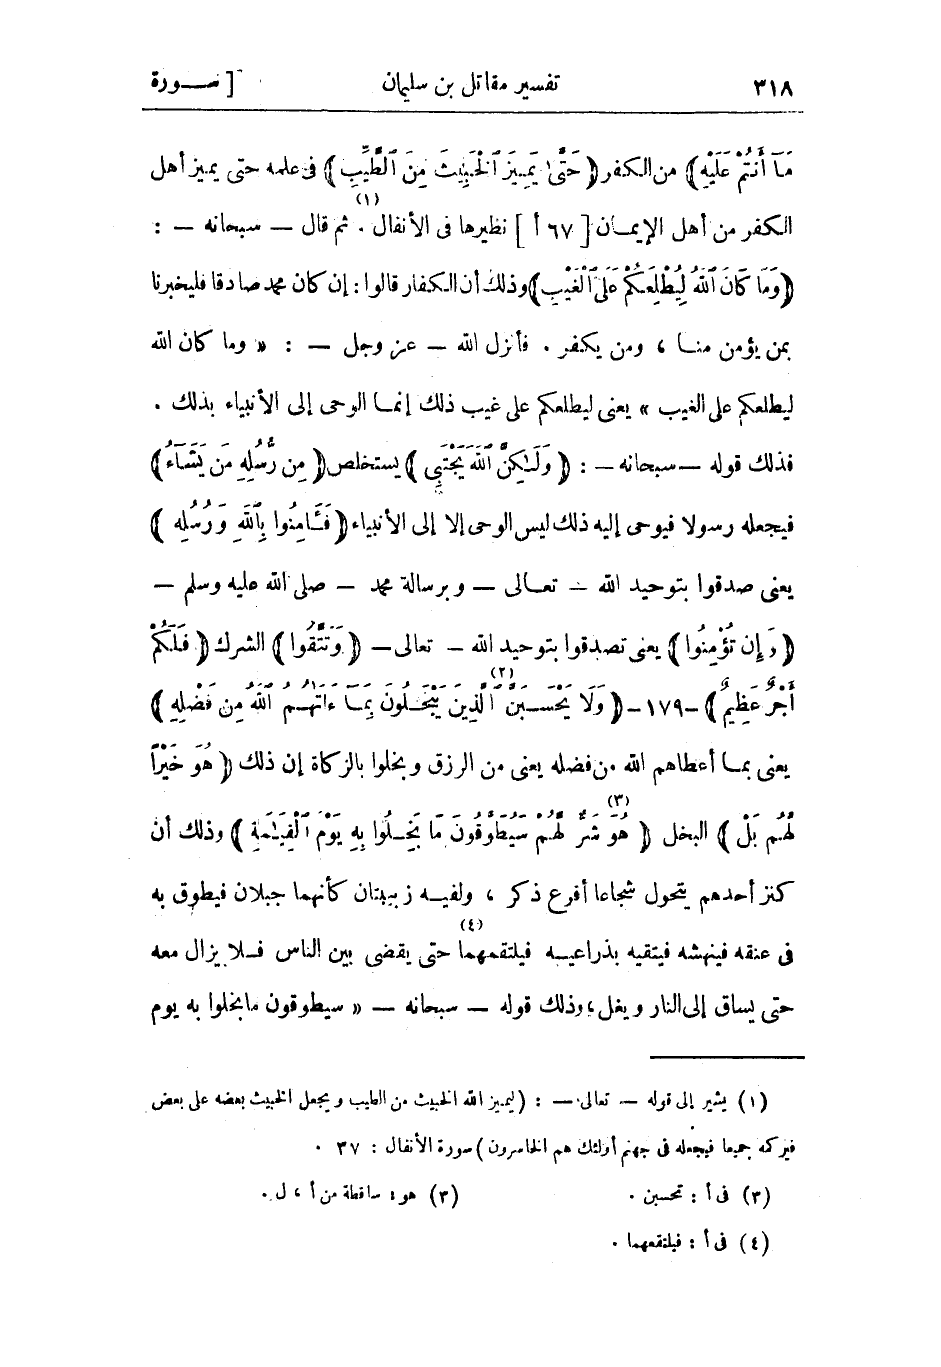 ٣١٨ تفسير مقاتل بن سليمان [ ســورة
مَآ أَنتُمْ عَلَيْهِ ﴾ من الكفر ﴿ حَتَّىٰ يَمِيزَ ٱلْخَبِيثَ مِنَ ٱلطَّيِّبِ ﴾ فى علمه حتى يميز أهل
الكفر من أهل الإيمــان [ ٦٧ أ ] نظيرها فى الأنفال (١) . ثم قال — سبحانه — :
﴿ وَمَا كَانَ ٱللَّهُ لِيُطْلِعَكُمْ عَلَى ٱلْغَيْبِ ﴾ وذلك أن الكفار قالوا : إن كان محمد صادقا فليخبرنا
بمن يؤمن منــا ، ومن يكفر . فأنزل الله — عز وجل — : « وما كان الله
ليطلعكم على الغيب » يعنى ليطلعكم على غيب ذلك إنمــا الوحى إلى الأنبياء بذلك .
فذلك قوله — سبحانه — : ﴿ وَلَـٰكِنَّ ٱللَّهَ يَجْتَبِى ﴾ يستخلص ﴿ مِن رُّسُلِهِ مَن يَشَآءُ ﴾
فيجعله رسولا فيوحى إليه ذلك ليس الوحى إلا إلى الأنبياء ﴿ فَـَٔامِنُوا بِٱللَّهِ وَرُسُلِهِ ﴾
يعنى صدقوا بتوحيد الله — تعــالى — وبرسالة محمد — صلى الله عليه وسلم —
﴿ وَإِن تُؤْمِنُوا ﴾ يعنى تصدقوا بتوحيد الله — تعالى — ﴿ وَتَتَّقُوا ﴾ الشرك ﴿ فَلَكُمْ
أَجْرٌ عَظِيمٌ ﴾ -١٧٩- ﴿ وَلَا يَحْسَــبَنَّ (٢) ٱلَّذِينَ يَبْخَــلُونَ بِمَــآ ءَاتَىٰهُــمُ ٱللَّهُ مِن فَضْلِهِ ﴾
يعنى بمــا أعطاهم الله من فضله يعنى من الرزق وبخلوا بالزكاة إن ذلك ﴿ هُوَ خَيْرًا
لَّهُم بَلْ ﴾ البخل ﴿ هُوَ (٣) شَرٌّ لَّهُمْ سَيُطَوَّقُونَ مَا بَخِــلُوا بِهِ يَوْمَ ٱلْقِيَـٰمَةِ ﴾ وذلك أن
كنز أحدهم يتحول شجاعا أقرع ذكر ، ولفيــه زبيبتان كأنهما جبلان فيطوق به
فى عنقه فينهشه فيتقيه بذراعيــه فيلتقمهما (٤) حتى يقضى بين الناس فــلا يزال معه
حتى يساق إلى النار ويغل ؛ وذلك قوله — سبحانه — « سيطوقون ما بخلوا به يوم
(١) يشير إلى قوله — تعالى — : (ليميز الله الخبيث من الطيب ويجعل الخبيث بعضه على بعض
فيركمه جميعا فيجعله فى جهنم أولئك هم الخاسرون) سورة الأنفال : ٣٧ .
(٣) فى أ : تحسبن . (٣) هو : ساقطة من أ ، ل .
(٤) فى أ : فيلتقعهما .